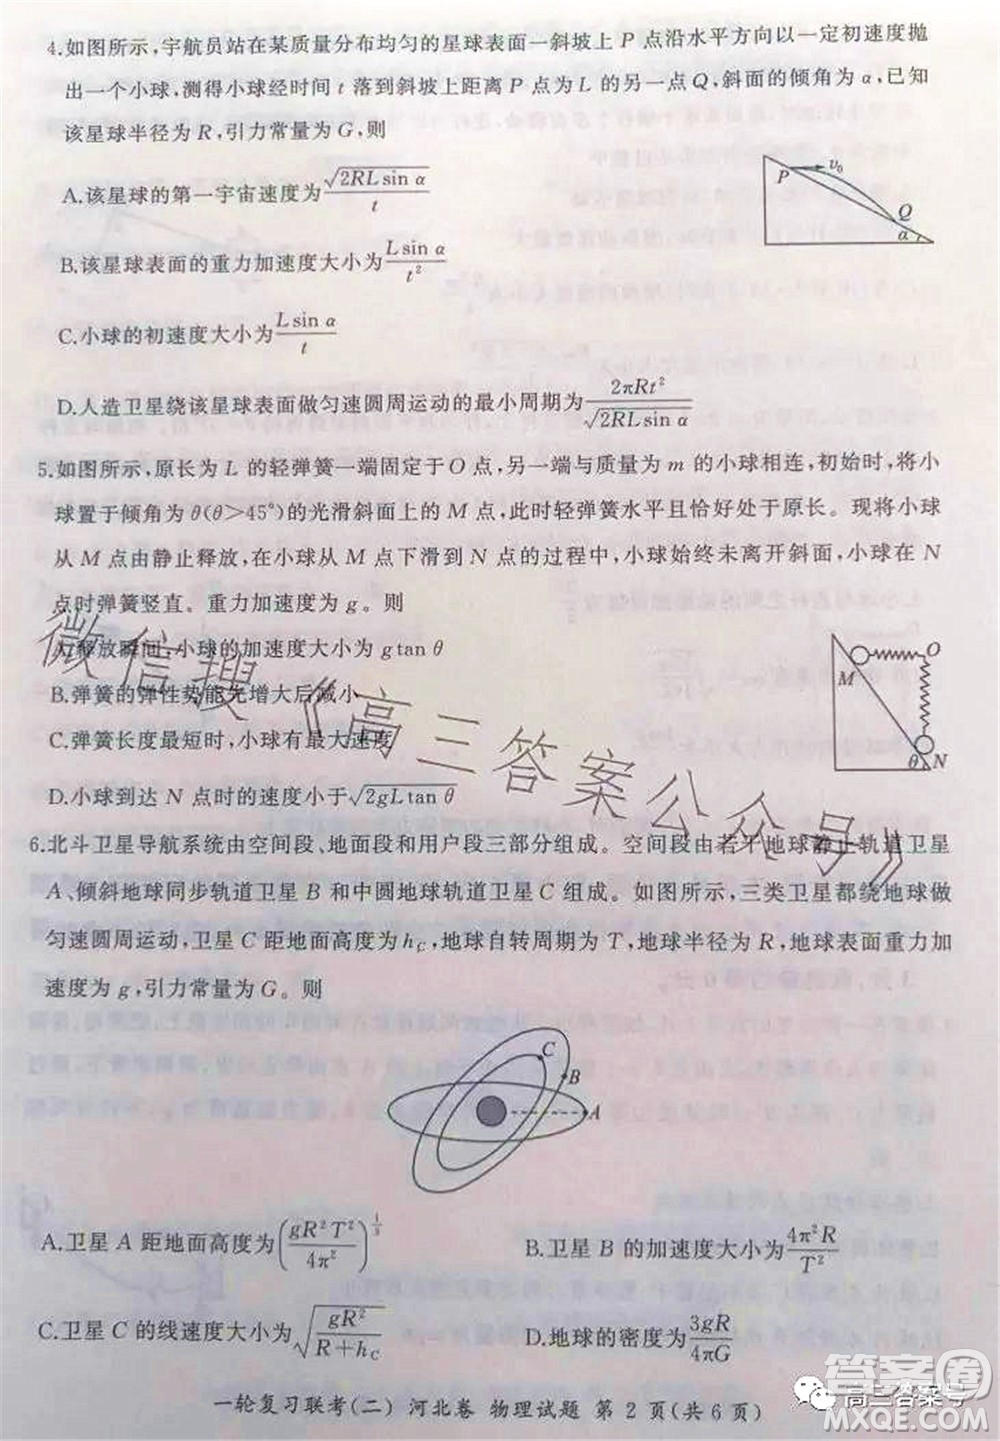 4.如图所示,宇航员站在某质量分布均匀的星球表面一斜坡上 P 点沿水平方向以一定初速度抛
出一个小球,测得小球经时间 t 落到斜坡上距离 P 点为 L 的另一点 Q,斜面的倾角为 α,已知
该星球半径为 R,引力常量为 G,则
A.该星球的第一宇宙速度为√(2RLsin α)/t
B.该星球表面的重力加速度大小为Lsin α/t²
C.小球的初速度大小为Lsin α/t
D.人造卫星绕该星球表面做匀速圆周运动的最小周期为2πRt²/√(2RLsin α)
P
v₀
Q
α
5.如图所示,原长为 L 的轻弹簧一端固定于 O 点,另一端与质量为 m 的小球相连,初始时,将小
球置于倾角为 θ(θ>45°)的光滑斜面上的 M 点,此时轻弹簧水平且恰好处于原长。现将小球
从 M 点由静止释放,在小球从 M 点下滑到 N 点的过程中,小球始终未离开斜面,小球在 N
点时弹簧竖直。重力加速度为 g。则
A.释放瞬间,小球的加速度大小为 gtan θ
B.弹簧的弹性势能先增大后减小
C.弹簧长度最短时,小球有最大速度
D.小球到达 N 点时的速度小于√(2gLtan θ)
M
O
θ
N
微信搜《高三答案公众号》
6.北斗卫星导航系统由空间段、地面段和用户段三部分组成。空间段由若干地球静止轨道卫星
A、倾斜地球同步轨道卫星 B 和中圆地球轨道卫星 C 组成。如图所示,三类卫星都绕地球做
匀速圆周运动,卫星 C 距地面高度为 h_C,地球自转周期为 T,地球半径为 R,地球表面重力加
速度为 g,引力常量为 G。则
C
B
A
A.卫星 A 距地面高度为(gR²T²/4π²)^(1/3)
B.卫星 B 的加速度大小为4π²R/T²
C.卫星 C 的线速度大小为√(gR²/(R+h_C))
D.地球的密度为3gR/4πG
一轮复习联考(二) 河北卷 物理试题 第 2 页(共 6 页)
高三答案号
答案圈
MXQE.COM